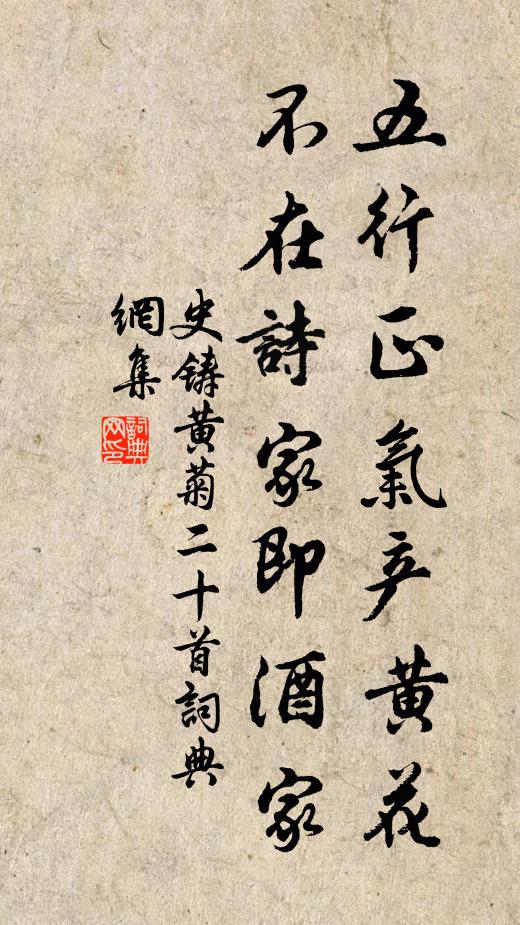 五行正氣产黄花
不在詩家即酒家
史鑄黄菊二十首詞典
網集
詞典
网印